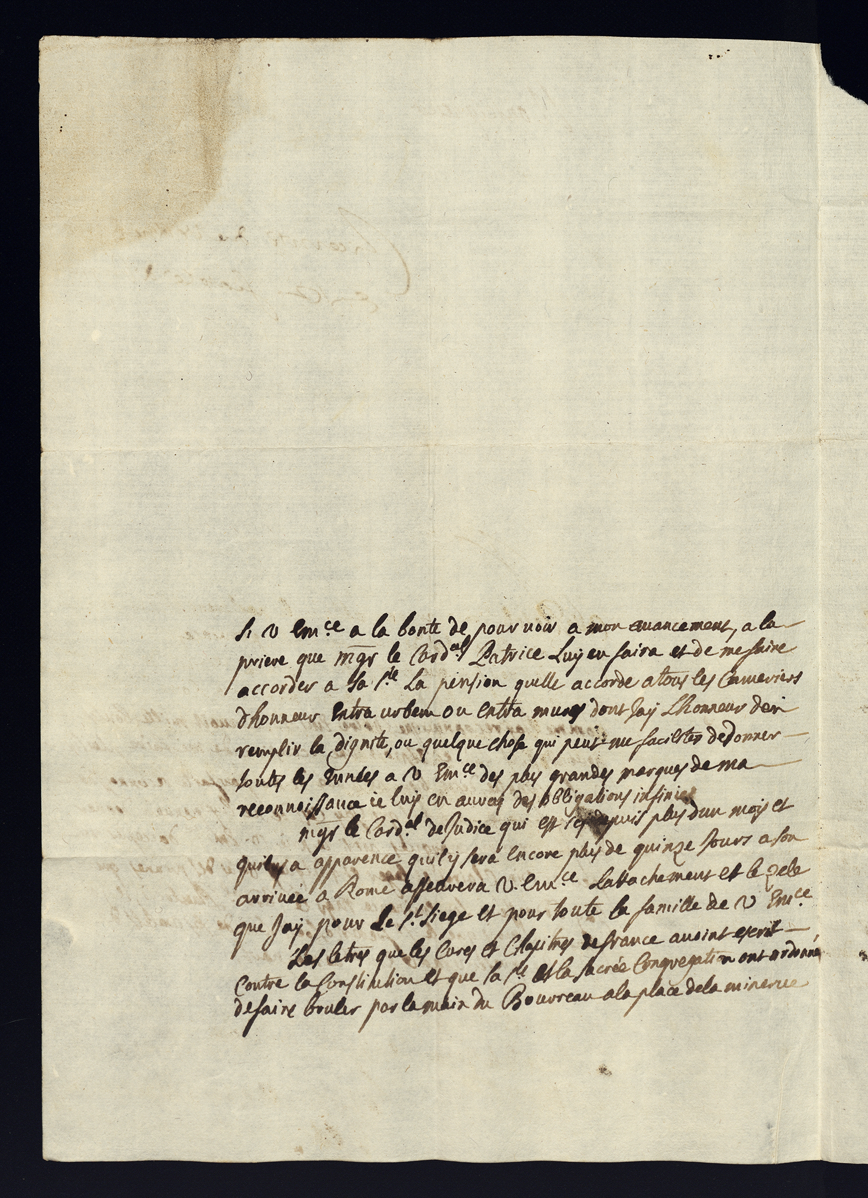 Si V Em.ce a la bonté de pourvoir a mon auancement, a la
priere que mgr le Card.al Patrice Luy en faira et de me faire
accorder a Sa S.té La pension quelle accorde a tous les Cameriers
d'honneur Extra urbem ou extra muros dont Jay Lhonneur den
remplir la dignité, ou quelque chose qui peut me faciliter de donner
toutes les années a V Em.ce des plus grandes marques de ma
reconnoissance ie luy en auray des obligations infinies
mgr le Card.al de Judice qui est icy depuis plus dun mois et
quil y a apparence quil y sera encore plus de quinze Jours a son
arrivée a Rome asseurera V Em.ce Lattachement et le zele
que Jay pour Le S.t Siege et pour toute la famille de V Em.ce
Les letres que les Cures et de france auoint escrit
contre la Constitution et que sa S.té et la sacrée Congregation ont ordonné
de faire bruler par la main du Bourreau a la place de la minerue